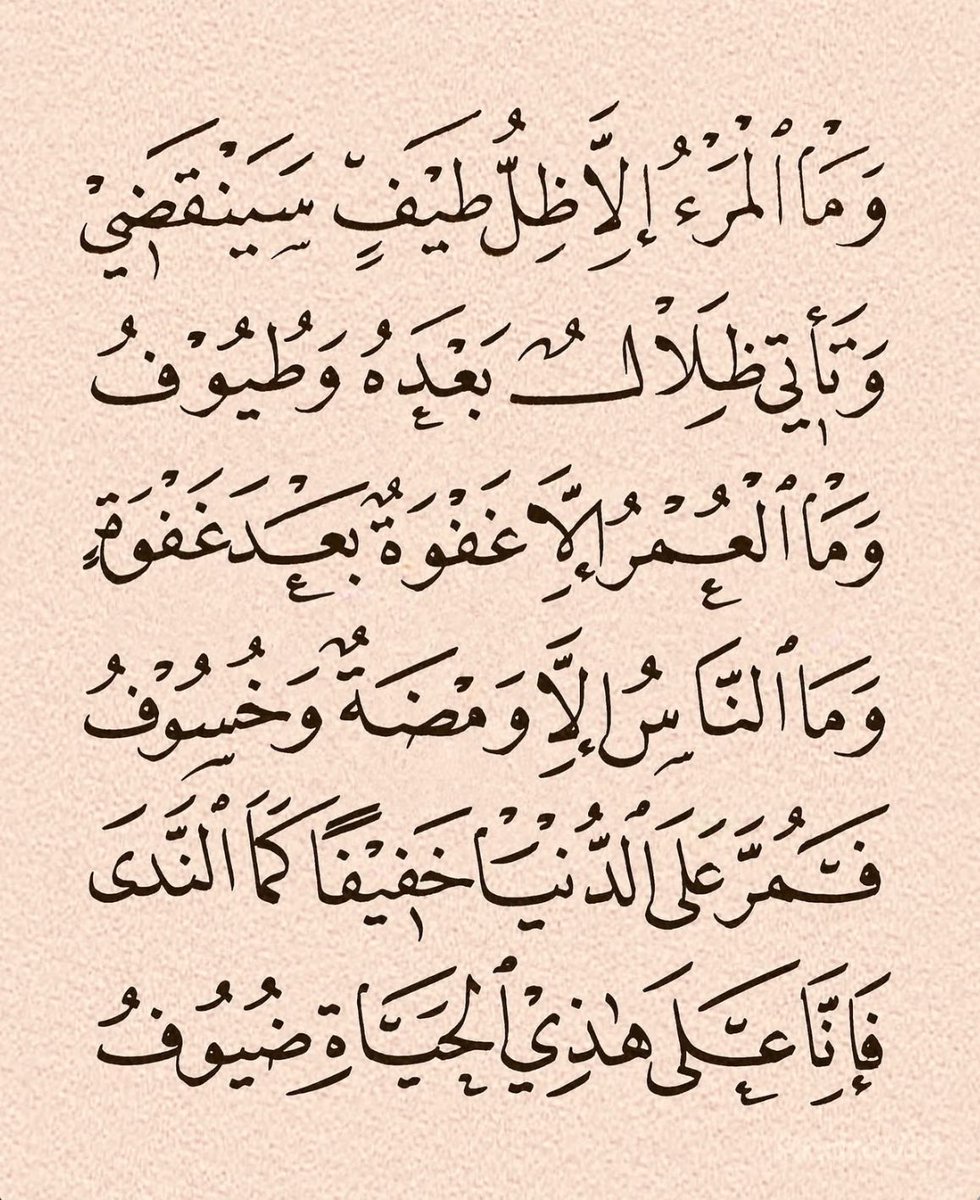 وَمَا ٱلْمَرْءُ إِلَّا ظِلُّ طَيْفٍ سَيَنْقَضِيْ
وَتَأْتِي ظِلَالٌ بَعْدَهُ وَطُيُوْفُ
وَمَا ٱلْعُمْرُ إِلَّا غَفْوَةٌ بَعْدَ غَفْوَةٍ
وَمَا ٱلنَّاسُ إِلَّا وَمْضَةٌ وَخُسُوْفُ
فَمُرَّ عَلَى ٱلدُّنْيَا خَفِيْفًا كَمَا ٱلنَّدَى
فَإِنَّا عَلَى هٰذِيْ ٱلحَيَاةِ ضُيُوْفُ